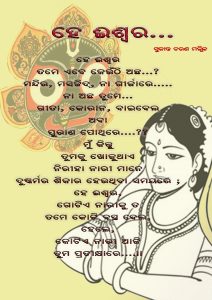 ହେ ଇଶ୍ୱର...
ସୁକାନ୍ତ ଚରଣ ମଲ୍ଲିକ
ହେ ଇଶ୍ୱର
ତମେ ଏବେ କେଉଁଠି ଅଛ...?
ମନ୍ଦିର, ମସଜିଦ୍, ନା ଗୀର୍ଜାରେ.....
ନା ଅଛ ତୁମେ...
ଗୀତା, କୋରାନ୍, ବାଇବେଲ୍
ଅବା
ପୁରାଣ ପୋଥିରେ....??
ମୁଁ କିନ୍ତୁ
ତୁମକୁ ଖୋଜୁଥାଏ
ନିରୀହା ନାରୀ ମାନେ
ଦୁଷ୍କର୍ମର ଶିକାର ହେଉଥିବା ସମୟରେ ;
ହେ ଇଶ୍ୱର,
ଗୋଟିଏ ନାରୀକୁ
ତମେ କୋଟି ବସ୍ତ୍ର
ହେଲେ,
କୋଟିଏ ନାରୀ ଆଜି
ତୁମ ପ୍ରତୀକ୍ଷାରେ....!!